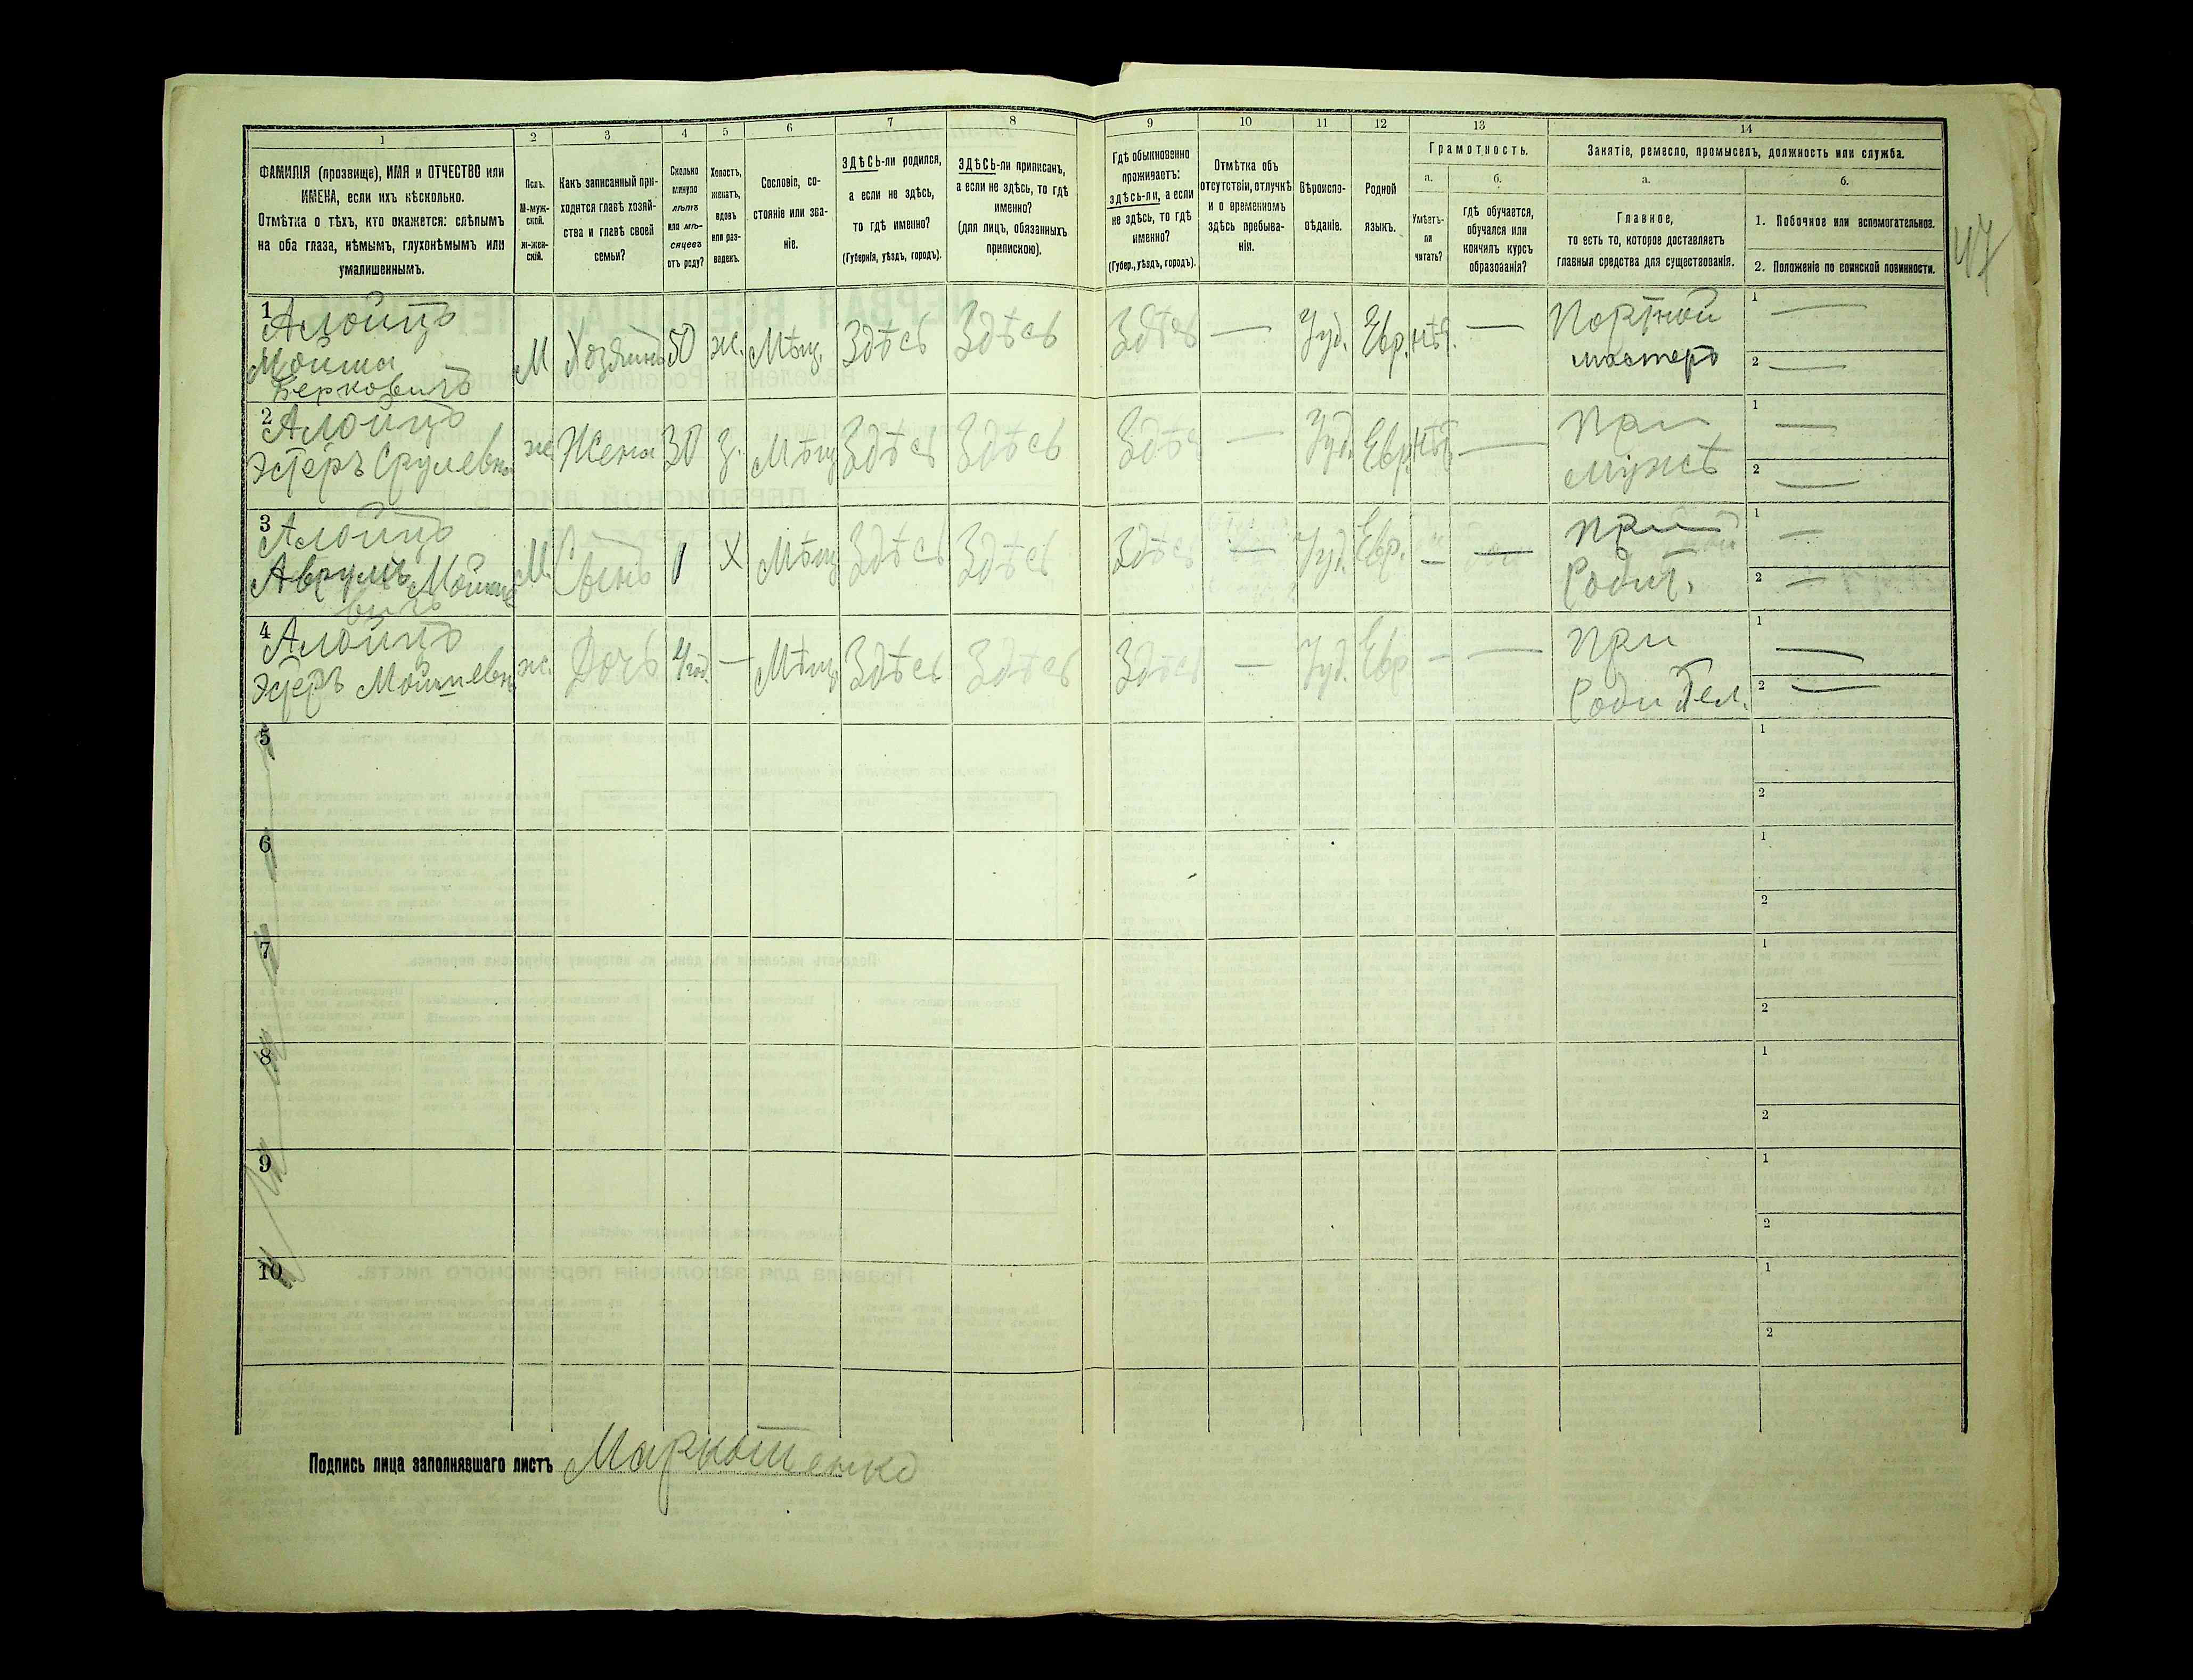 1 2 3 4 5 6 7 8 9 10 11 12 13 14
ФАМИЛІЯ (прозвище), ИМЯ и ОТЧЕСТВО или
ИМЕНА, если ихъ нѣсколько.
Отмѣтка о тѣхъ, кто окажется: слѣпымъ
на оба глаза, нѣмымъ, глухонѣмымъ или
умалишеннымъ.
Полъ.
М-муж-
ской.
ж-жен-
скій.
Какъ записанный при-
ходится главѣ хозяй-
ства и главѣ своей
семьи?
Сколько
минуло
лѣтъ
или мѣ-
сяцевъ
отъ роду?
Холостъ,
женатъ,
вдовъ
или раз-
веденъ.
Сословіе, со-
стояніе или зва-
ніе.
ЗДѢСЬ-ли родился,
а если не здѣсь,
то гдѣ именно?
(Губернія, уѣздъ, городъ).
ЗДѢСЬ-ли приписанъ,
а если не здѣсь, то гдѣ
именно?
(для лицъ, обязанныхъ
припискою).
Гдѣ обыкновенно
проживаетъ:
здѣсь-ли, а если
не здѣсь, то гдѣ
именно?
(Губер., уѣздъ, городъ).
Отмѣтка объ
отсутствіи, отлучкѣ
и о временномъ
здѣсь пребыва-
ніи.
Вѣроиспо-
вѣданіе.
Родной
языкъ.
Грамотность.
а.
Умѣетъ-
ли
читать?
б.
гдѣ обучается,
обучался или
кончилъ курсъ
образованія?
Занятіе, ремесло, промыселъ, должность или служба.
а.
Главное,
то есть то, которое доставляетъ
главныя средства для существованія.
б.
1. Побочное или вспомогательное.
2. Положеніе по воинской повинности.
47
1 Алойцъ
Мойша
Берковичъ
М Хозяинъ 50 ж. Мѣщ. Здѣсь Здѣсь Здѣсь — Іуд. Евр. нѣт. — Портной
мастеръ
1 —
2 —
2 Алойцъ
Эстеръ Срулевна
ж Жена 30 З. Мѣщ Здѣсь Здѣсь Здѣс — Іуд. Евр. нѣт — При
мужѣ
1 —
2 —
3 Алойцъ
Аврумъ Мойше
вичъ
М. Сынъ 1 Х Мѣщ Здѣсь Здѣсь Здѣсь — Іуд. Евр. — — При
Родит.
1 —
2 —
4 Алойцъ
Эстеръ Мойшевн
ж. Дочь 4 год. — Мѣщ. Здѣсь Здѣсь Здѣсь — Іуд. Евр — — При
Родител.
1 —
2 —
5
1
2
6
1
2
7
1
2
8
1
2
9
1
2
10
1
2
Подпись лица заполнявшаго листъ